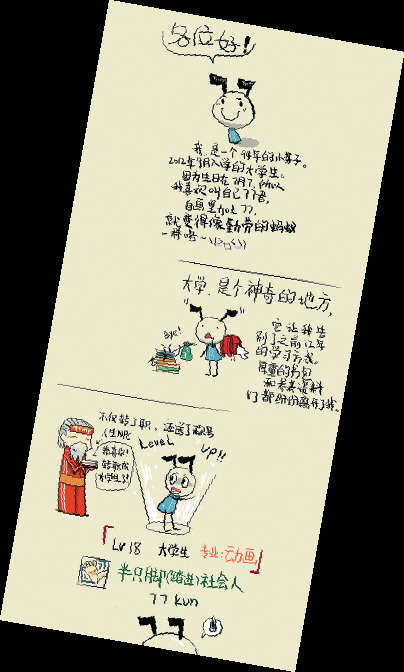 各位好!
我,是一个94年的小茧子。
2012年9月入学的大学生。
因为生日在7月7,所以
我喜欢叫自己77君,
自画里加上77,
就变得像勤劳的蚂蚁
一样咯~
大学,是个神奇的地方,
它让我告
别了之前12年
的学习方式。
厚重的书包
和考卷资料
们都纷纷离开了我。
bye!
不仅转了职,还送了称号
LeveL UP!!
人生NPC
恭喜你!
转职成
大学生了!
「Lv18 大学生 专业:动画」
半只脚(踏进)社会人
77 kun